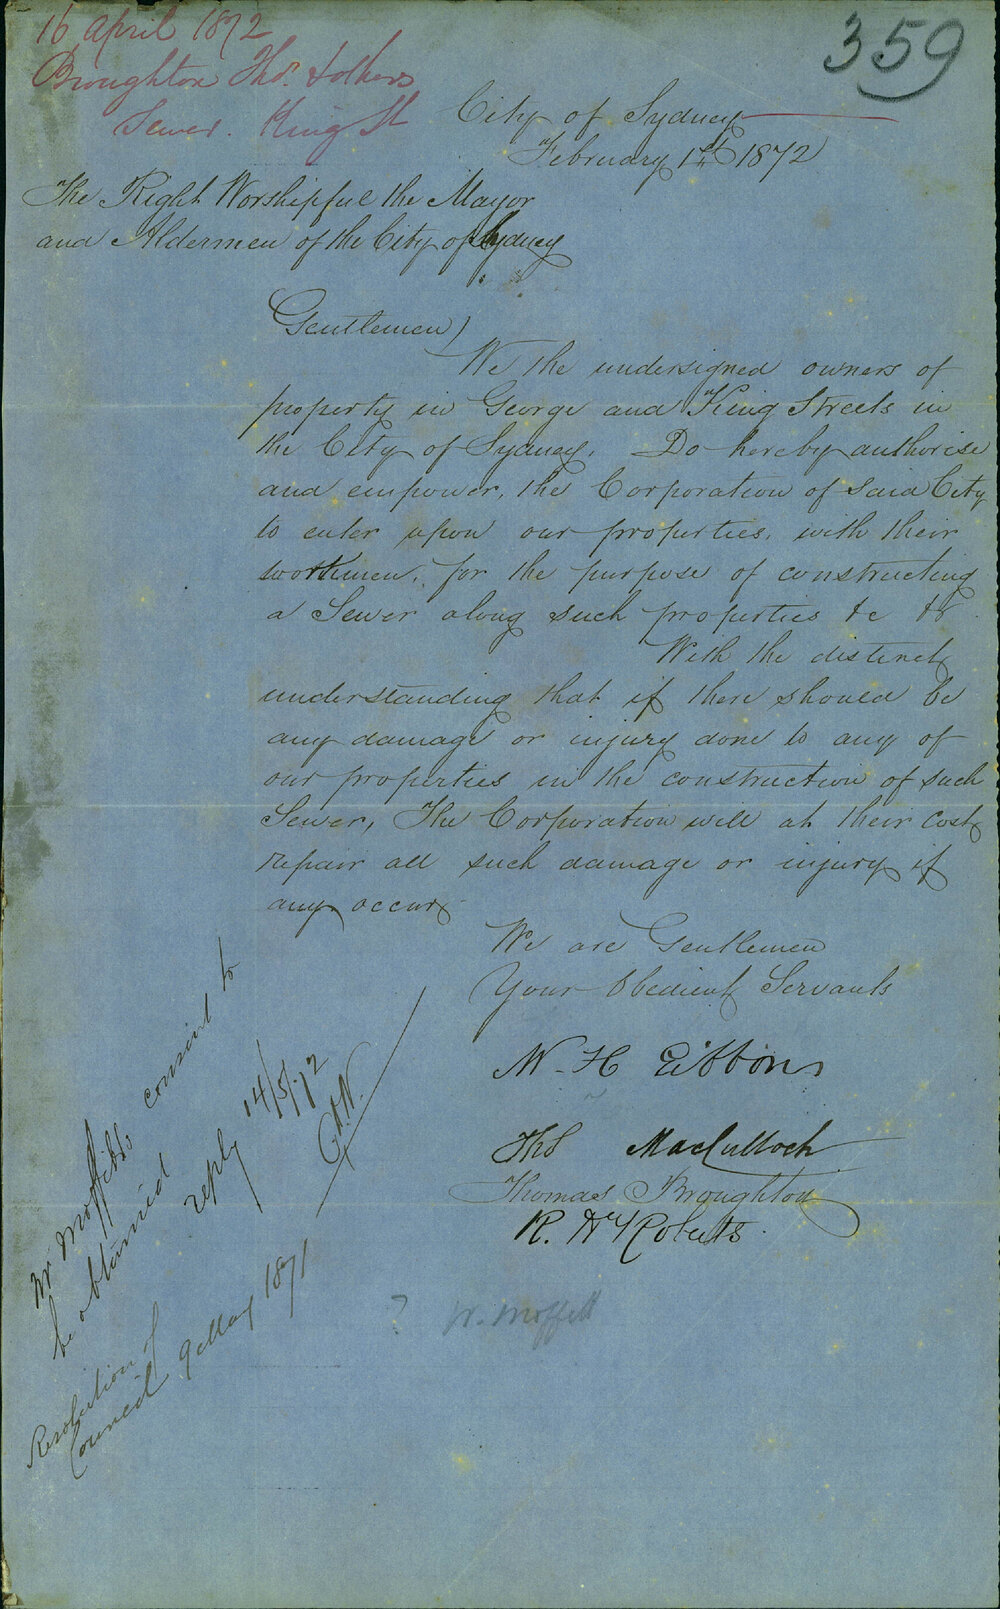 16 April 1872
Broughton Thos. & others
Sewer. King St
359
City of Sydney
February 1st 1872
The Right Worshipful the Mayor
and Aldermen of the City of Sydney
Gentlemen)
We the undersigned owners of
property in George and King Streets in
the City of Sydney. Do hereby authorise
and empower, the Corporation of said City
to enter upon our properties, with their
workmen, for the purpose of constructing
a Sewer along such properties &c &c
With the distinct
understanding that if there should be
any damage or injury done to any of
our properties in the construction of such
Sewer, The Corporation will at their cost
repair all such damage or injury if
any occur
We are Gentlemen
Your Obedient Servants
W. H Gibbons
Tho MacCulloch
Thomas Broughton
R. Roberts
? W. Moffett
Mr Moffitts consent to
be obtained
reply 14/5/72
Resolution of
Council 9 May 1871